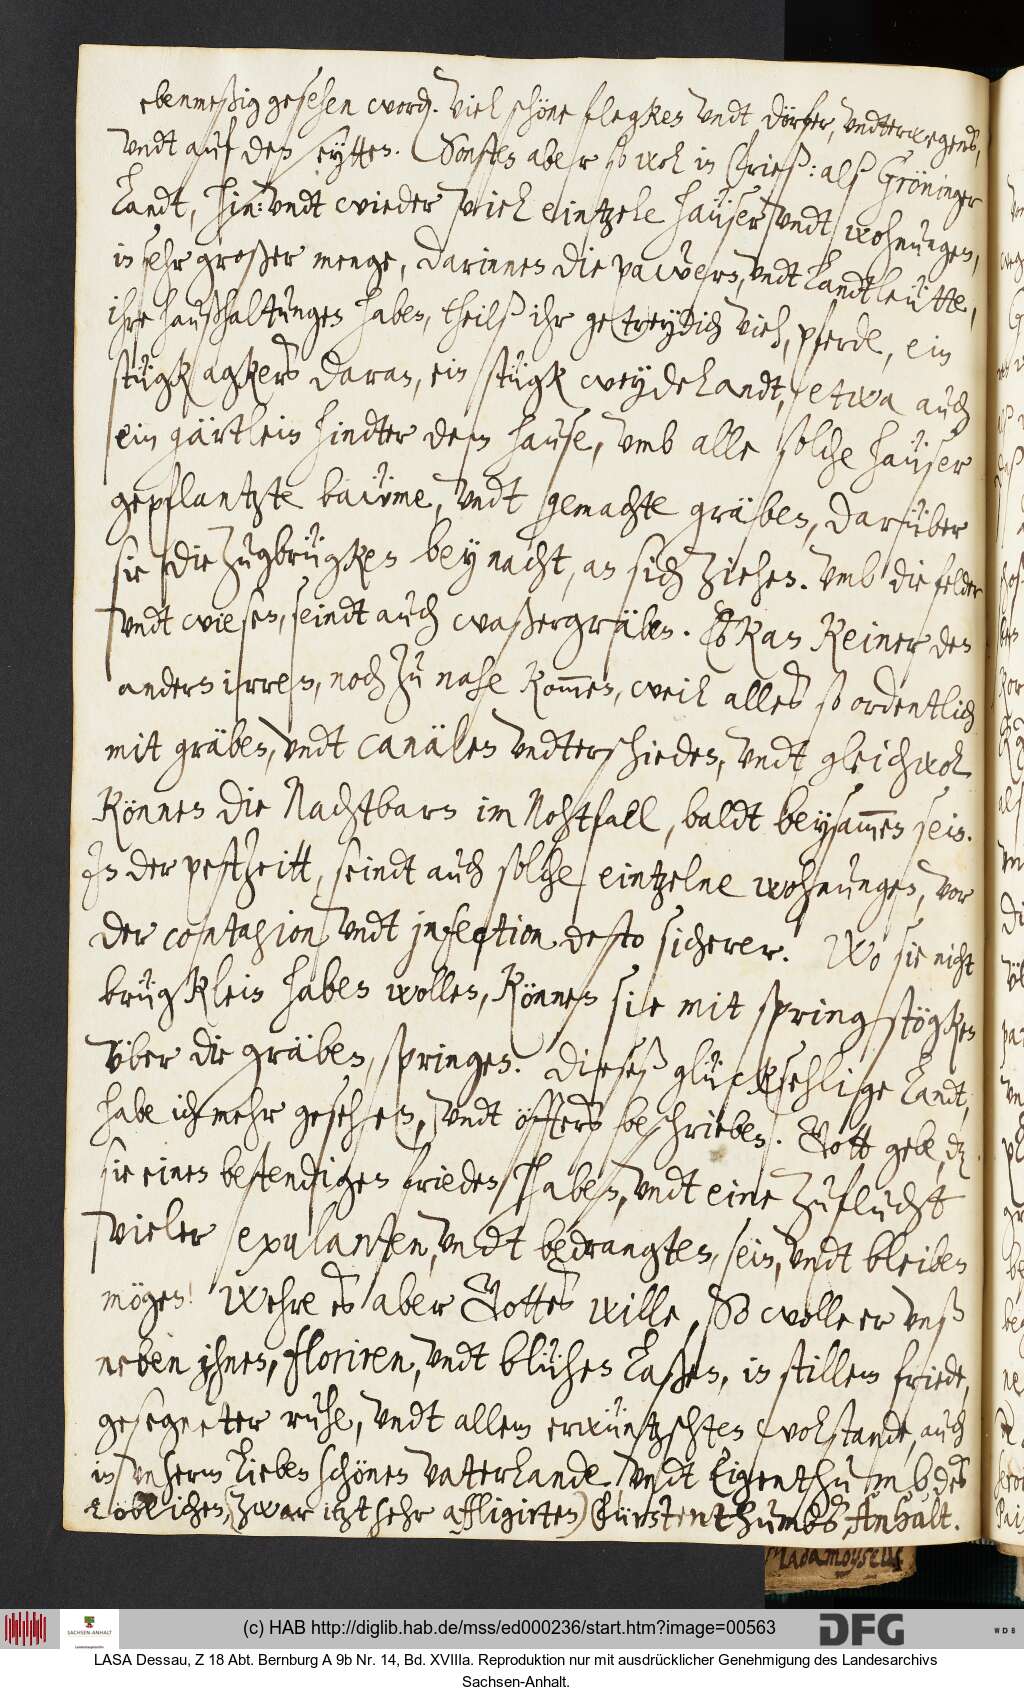 ebenmeßig gesehen word. Viel schöne flegken vndt dörfer, vndterwegens,
vndt auf den seytten. Sonsten aber so wol in Frieß: als Gröninger
Landt, hin: vndt wieder viel eintzele haüser vndt wohnungen,
in sehr großer menge, darinnen die pawers, vndt Landtleütte,
ihre haußhaltungen haben, theilß ihr getreydich vieh, pferde, ein
stügk agkers daran, ein stügk weydelandt, etwa auch
ein gärtlein hindter dem hause, vmb alle solche haüser
gepflantzte baüme, vndt gemachte gräben, darüber
sie die Zugbrügken bey nacht, an sich ziehen. Vmb die felder
vndt wiesen, seindt auch waßergräben. Es kan keiner den
andern irren, noch zu nahe kommen, weil alles so ordentlich
mit gräben, vndt canälen vndterschieden, vndt gleichwol
können die Nachtbarn im Nohtfall, baldt beysammen sein.
In der pestzeitt, seindt auch solche eintzelne wohnungen, vor
der contagion vndt infection desto sicherer. Wo sie nicht
brügklein haben wollen, können sie mit springstögken
vber die gräben, springen. Dieses glücksehlige Landt,
habe ich mehr gesehen, vndt öffters beschrieben. Gott gebe, dz
sie einen bestendigen frieden haben, vndt eine Zuflucht
vieler exulanten, vndt bedrangten, sein, vndt bleiben
mögen! Wehre es aber Gottes wille, So wolle er vnß
neben ihnen, floriren, vndt blühen Laßen, in stillem friede,
gesegneter ruhe, vndt allem erwüntzschten wolstande, auch
in vnserm Lieben schönen Vaterlande vndt Eigenthumb des
Löblichen, (zwar itzt sehr affligirten) Fürstenthumbs Anhalt.
Madamoyselle
(c) HAB http://diglib.hab.de/mss/ed000236/start.htm?image=00563
SACHSEN-ANHALT
DFG
WDB
LASA Dessau, Z 18 Abt. Bernburg A 9b Nr. 14, Bd. XVIIIa. Reproduktion nur mit ausdrücklicher Genehmigung des Landesarchivs
Sachsen-Anhalt.